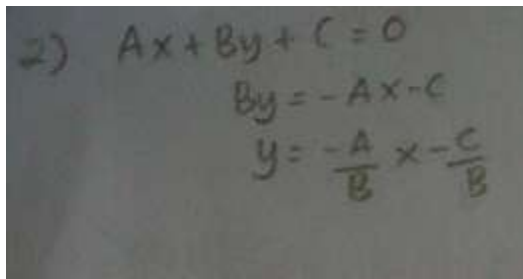 2) Ax + By + C = 0
By = -Ax - C
y = -A/B x - C/B